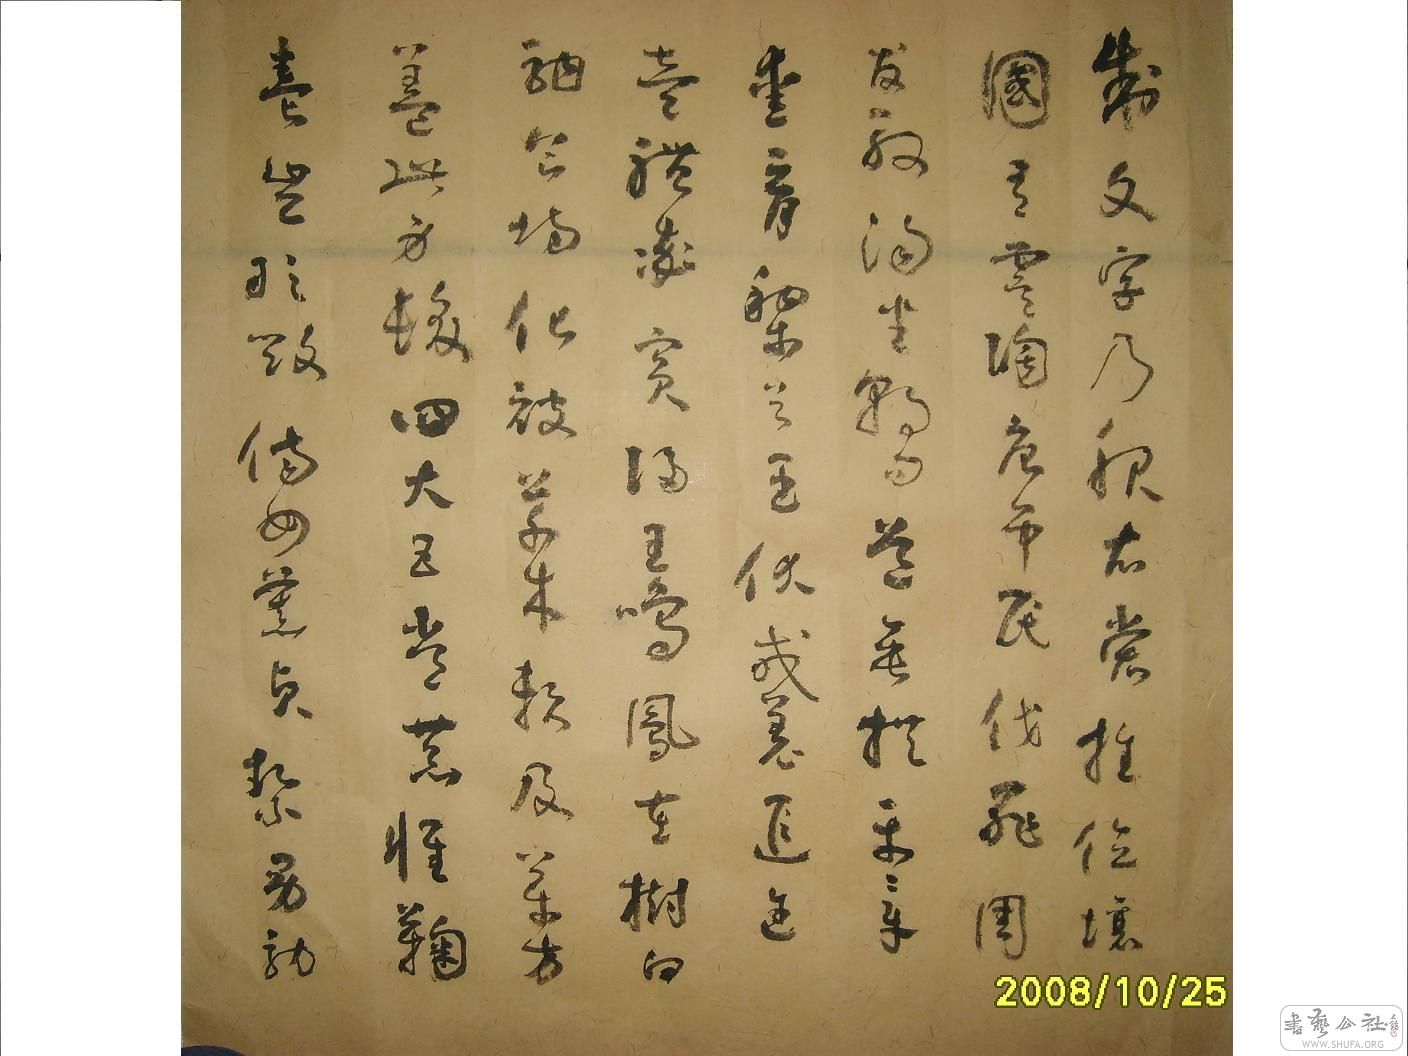 制文字乃服衣裳推位讓
國有虞陶唐弔民伐罪周
發殷湯坐朝問道垂拱平章
愛育黎首臣伏戎羌遐邇
壹體率賓歸王鳴鳳在樹白
駒食場化被草木賴及萬方
蓋此身髮四大五常恭惟鞠
養豈敢毀傷女慕貞絜男效
2008/10/25
書藝公社
WWW.SHUFA.ORG